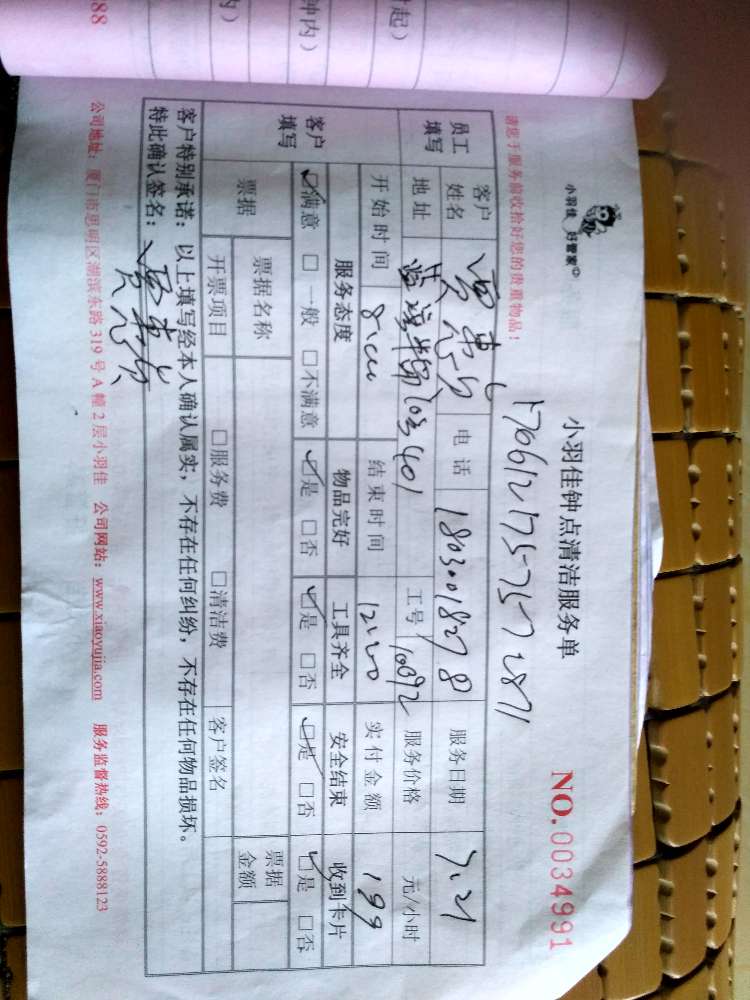 小羽佳 好管家
小羽佳钟点清洁服务单
NO.0034991
请您于服务前收拾好您的贵重物品！
员工填写
客户姓名
电话
服务日期 7.21
地址
工号 10092
服务价格 元/小时
开始时间 8:00
结束时间 12:00
实付金额 199
客户填写
服务态度 物品完好 工具齐全 安全结束 收到卡片
☑满意 □一般 □不满意 ☑是 □否 ☑是 □否 ☑是 □否 ☑是 □否
票据
票据名称
票据金额
开票项目 □服务费 □清洁费 客户签名
客户特别承诺：以上填写经本人确认属实，不存在任何纠纷，不存在任何物品损坏。
特此确认签名：
公司地址：厦门市思明区湖滨东路319号A幢2层小羽佳 公司网站：www.xiaoyujia.com 服务监督热线：0592-5888123
起）
钟内）
内）
88